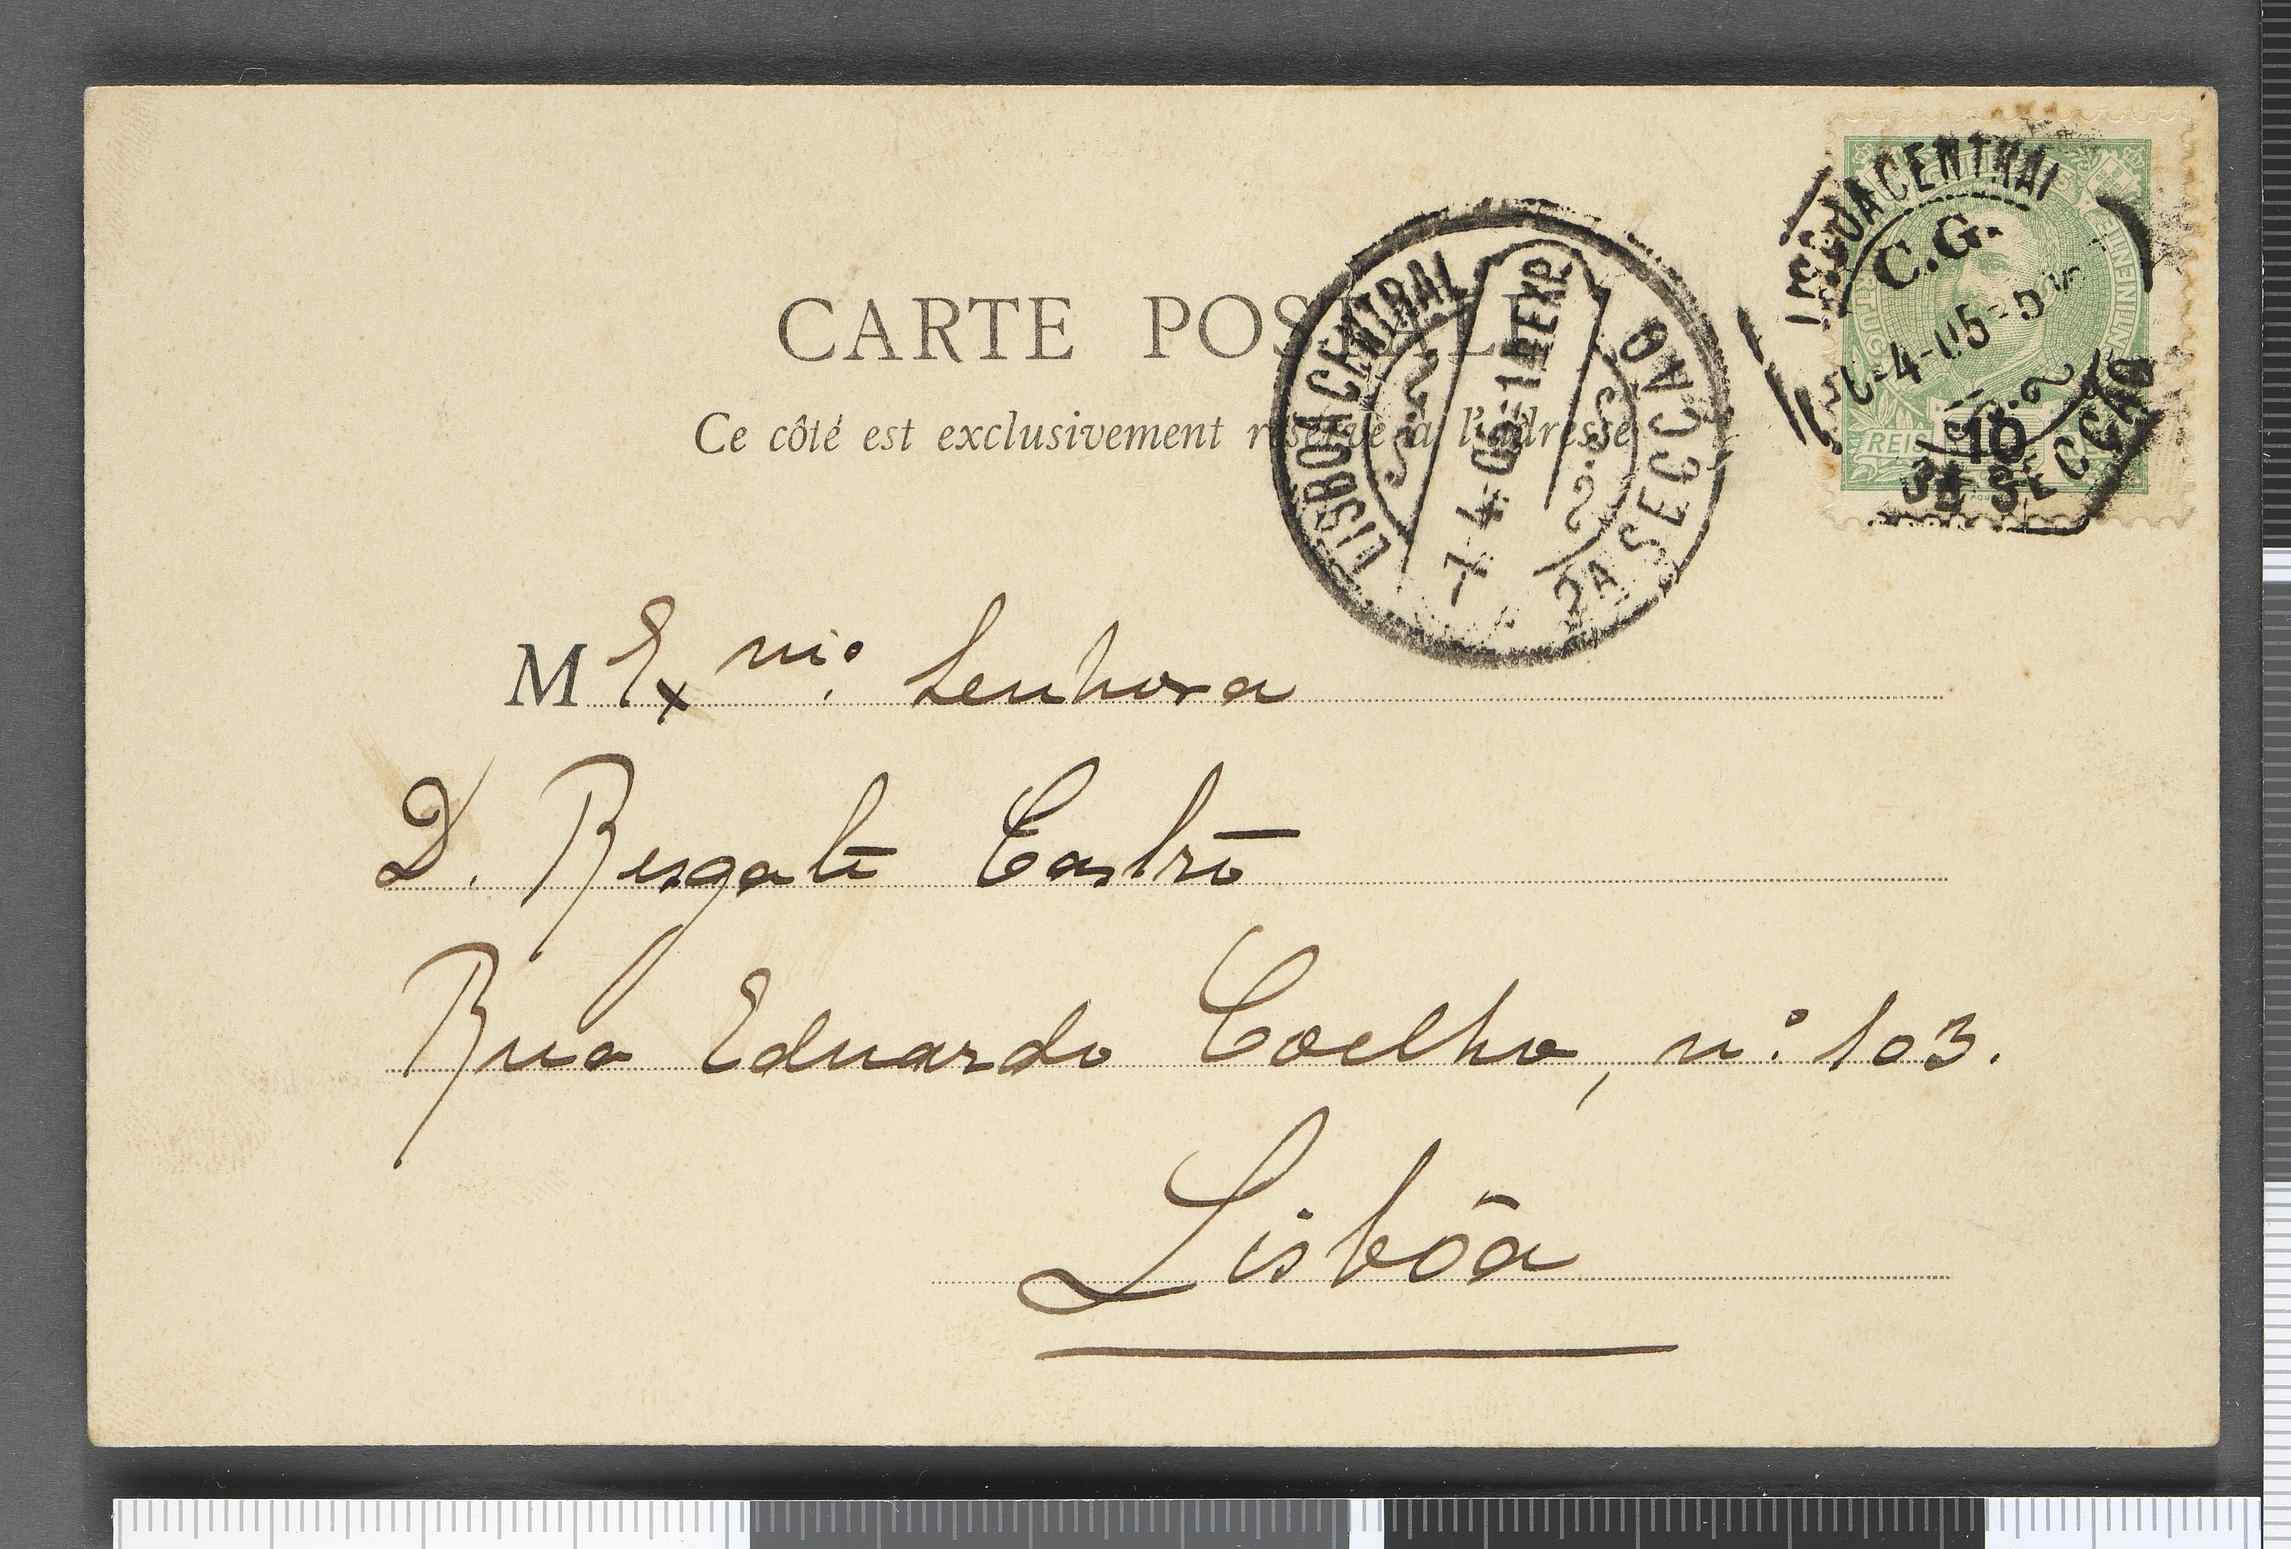 CARTE POSTALE
Ce côté est exclusivement réservé à l'adresse
LISBOA CENTRAL
7-4-05-1ª EXP
2A SECCAO
LISBOA CENTRAL
C.G.
4-05
3A SECCAO
REIS 10
M Exmº. Senhora
D. Resgate Castro
Rua Eduardo Coelho, nº 103.
Lisbôa